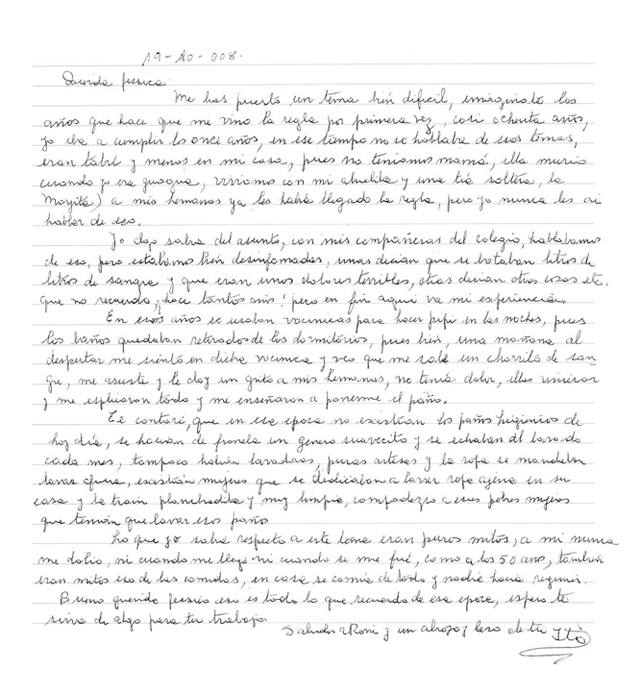 19-10-008.
Querida Jessica:
Me has puesto un tema bien dificil, imaginate los
años que hace que me vino la regla por primera vez, casi ochenta años,
yo iba a cumplir los once años, en ese tiempo no se hablaba de esos temas,
eran tabú y menos en mi casa, pues no teniamos mamá, ella murio
cuando yo era guagua, viviamos con mi abuelita y una tiá soltera, la
Mayita) a mis hemanas ya les habiá llegado la regla, pero yo nunca les oi
hablar de eso.
Yo algo sabia del asunto, con mis compañeras del colegio, hablabamos
de eso, pero estabamos bien desinformadas, unas decian que se botaban litros de
litros de sangre y que eran unos dolores terribles, otras decian otras cosas etc.
que no recuerdo, ¡hace tantos años! pero en fin aqui va mi experiencia.
En esos años se usaban vacinicas para hacer pipi en las noches, pues
los baños quedaban retirados de los dormitorios, pues bien, una mañana al
despertar me siento en dicha vacinica y veo que me sale un chorrito de san-
gre, me asuste y le doy un grito a mis hemanas, no tenia dolor, ellas vinieron
y me esplicaron todo y me enseñaron a ponerme el paño.
Te contaré, que en esa epoca no existian los paños higienicos de
hoy dia, se hacian de franela un genero suavecito y se echaban al lavado
cada mes, tampoco habian lavadoras, puras artesas y la ropa se mandaba
lavar afuera, existian mujeres que se dedicaban a lavar ropa ajena en su
casa y la traian planchadita y muy limpia, compadezco a esas pobres mujeres
que tenian que lavar esos paños
Lo que yo sabia respecto a este tema eran puros mitos, a mi nunca
me dolio, ni cuando me llegó ni cuando se me fué, como a los 50 años, tambien
eran mitos eso de las comidas, en casa se comia de todo y nadie hacia regimen.
Bueno querida Jessica eso es todo lo que recuerdo de esa epoca, espero te
sirva de algo para tu trabajo.
Saludos a Roni y un abrazo y beso de tu Ita